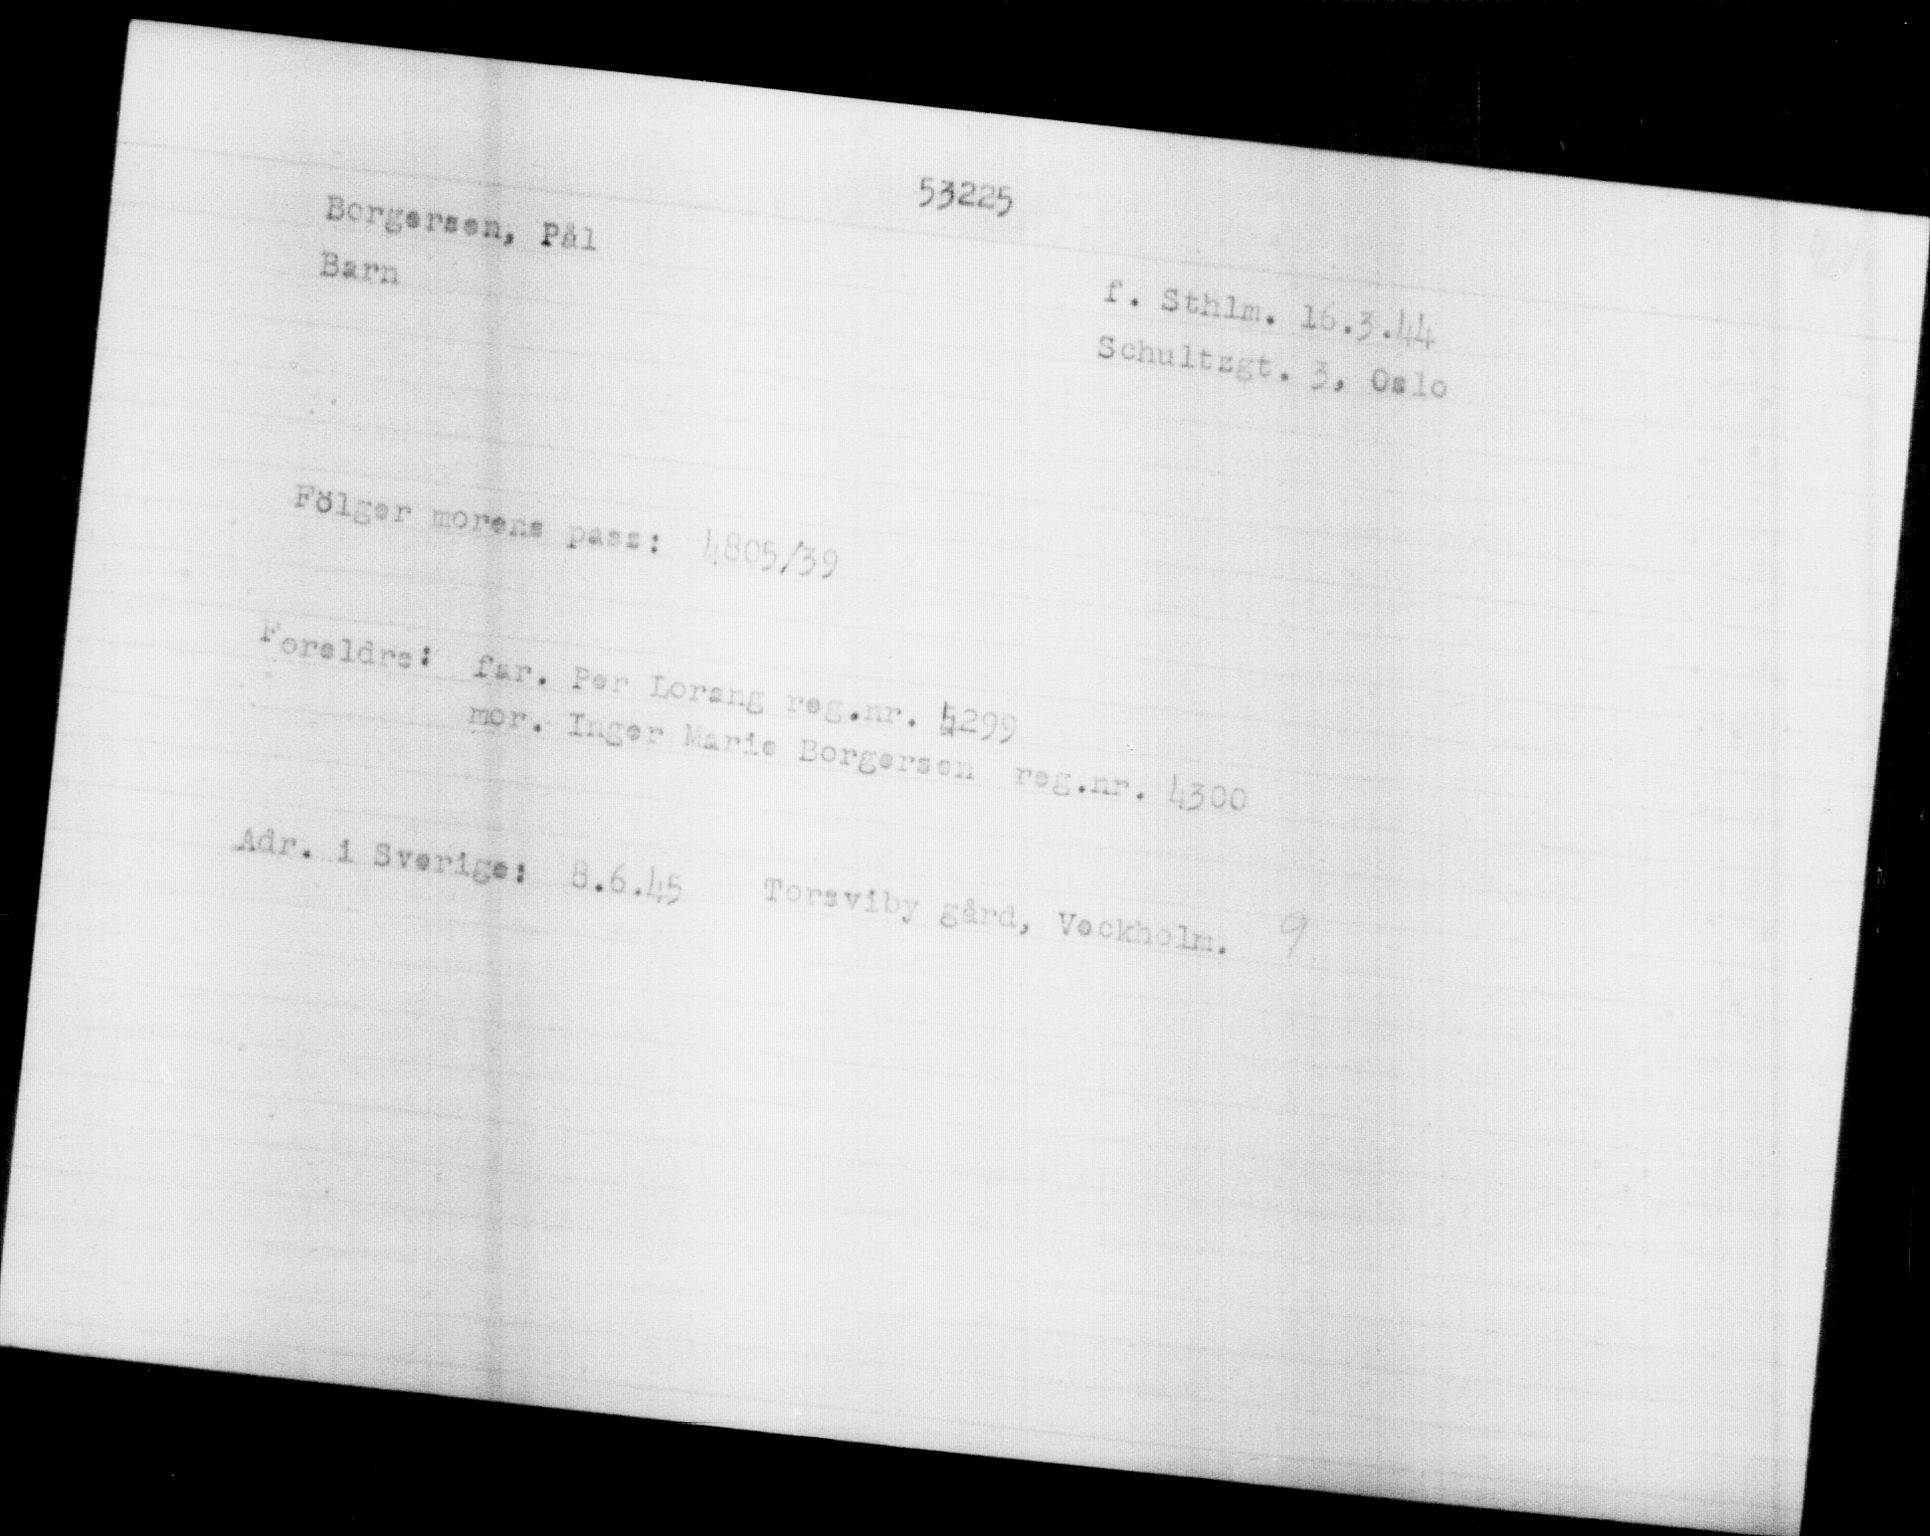 53225
Borgersen, Pål
Barn
f. Sthlm. 16.3.44
Schultzgt. 3, Oslo
Fölger morens pass: 4805/39
Foreldre: far. Per Lorang reg.nr. 4299
mor. Inger Marie Borgersen reg.nr. 4300
Adr. i Sverige: 8.6.45 Torsviby gård, Veckholm. 9